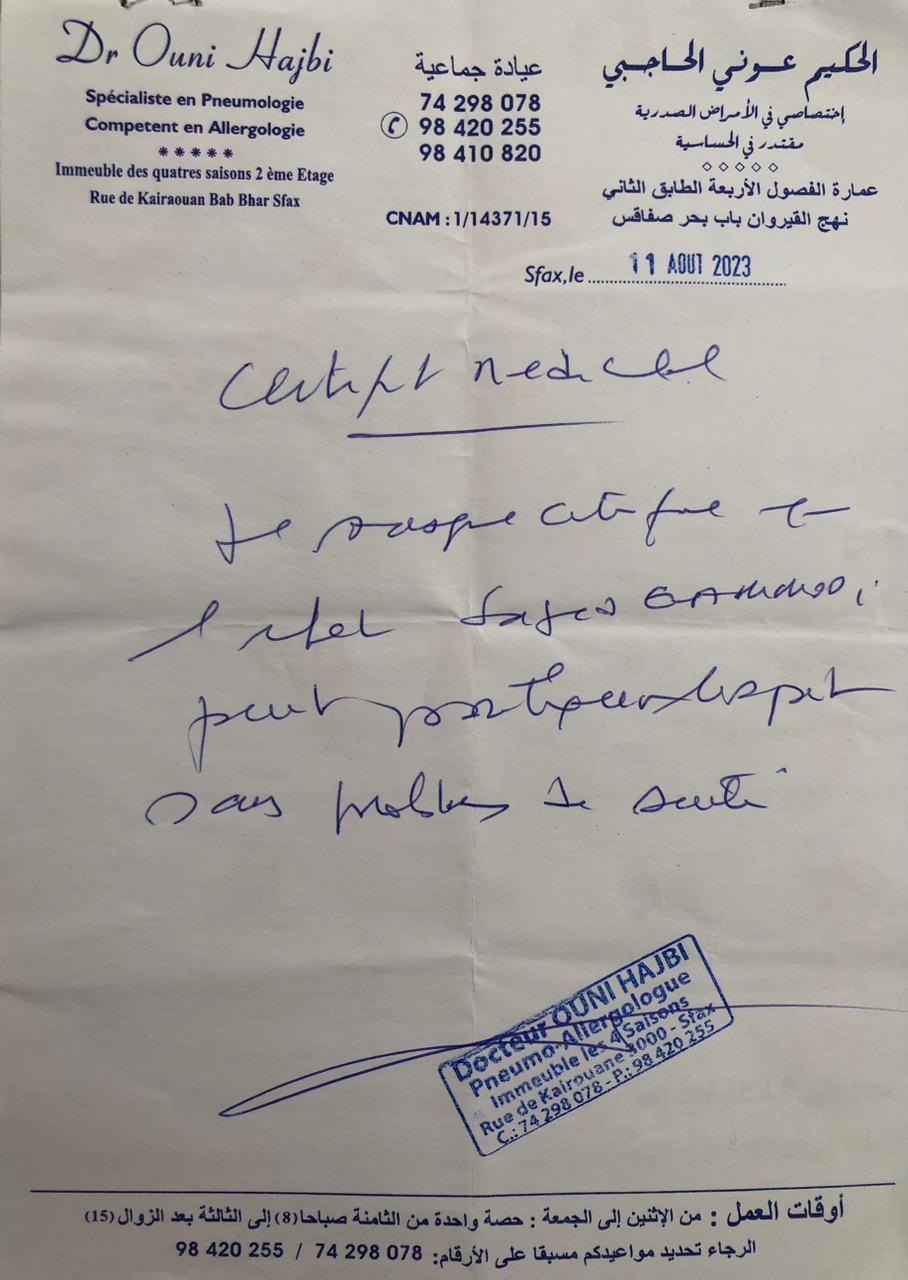 Dr Ouni Hajbi
Spécialiste en Pneumologie
Competent en Allergologie
*****
Immeuble des quatres saisons 2 ème Etage
Rue de Kairaouan Bab Bhar Sfax
عيادة جماعية
74 298 078
98 420 255
98 410 820
CNAM : 1/14371/15
الحكيم عـوني الحـاجـبي
إختصاصي في الأمراض الصدرية
مقتدر في الحساسية
◇◇◇◇◇
عمارة الفصول الأربعة الطابق الثاني
نهج القيروان باب بحر صفاقس
Sfax,le 11 AOUT 2023
Certificat médical
Je soussigné certifie que
l'enfant
peut
sans problèmes de santé
Docteur OUNI HAJBI
Pneumo-Allergologue
Immeuble les 4 Saisons
Rue de Kairouane 3000 - Sfax
C.: 74 298 078 - P.: 98 420 255
أوقات العمل : من الإثنين إلى الجمعة : حصة واحدة من الثامنة صباحا (8) إلى الثالثة بعد الزوال (15)
الرجاء تحديد مواعيدكم مسبقا على الأرقام: 74 298 078 / 98 420 255